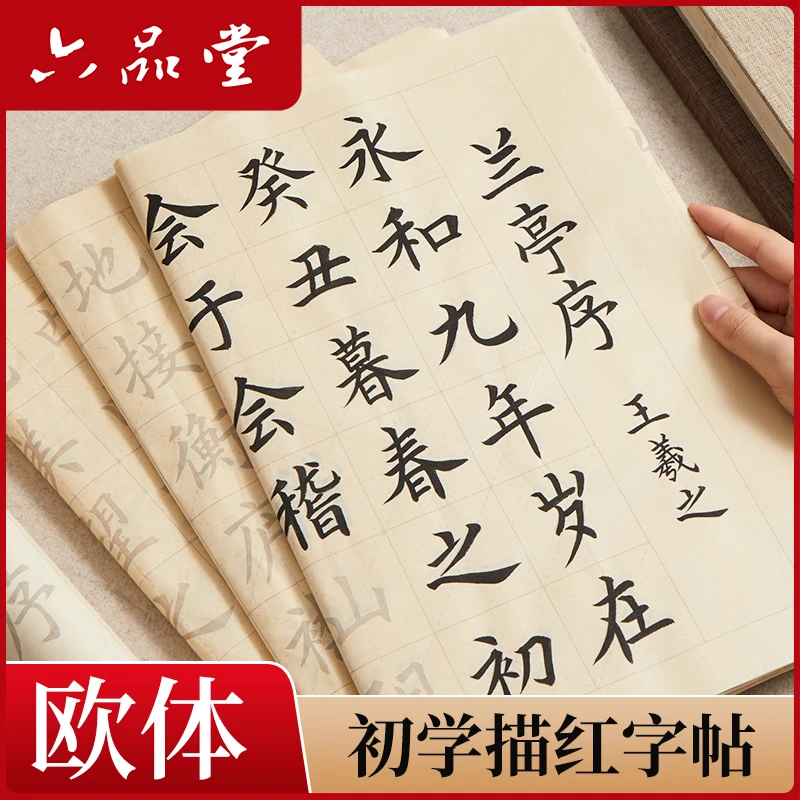 六品堂
兰亭序
王羲之
永和九年岁在
癸丑暮春之初
会于会稽
地接衡庐
望
序
山
欧体
初学描红字帖